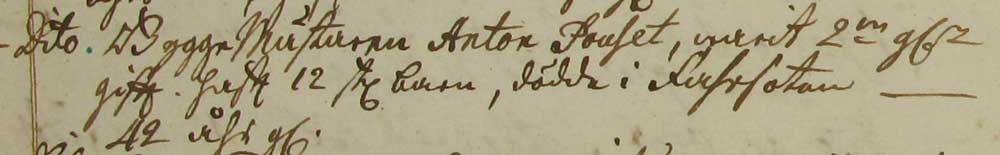 Dito. Bggn Mästaren Anton Pouset, warit 2:ne gr
gift. haft 12 st barn, dödde i Farsoten ——
42 åhr gl.